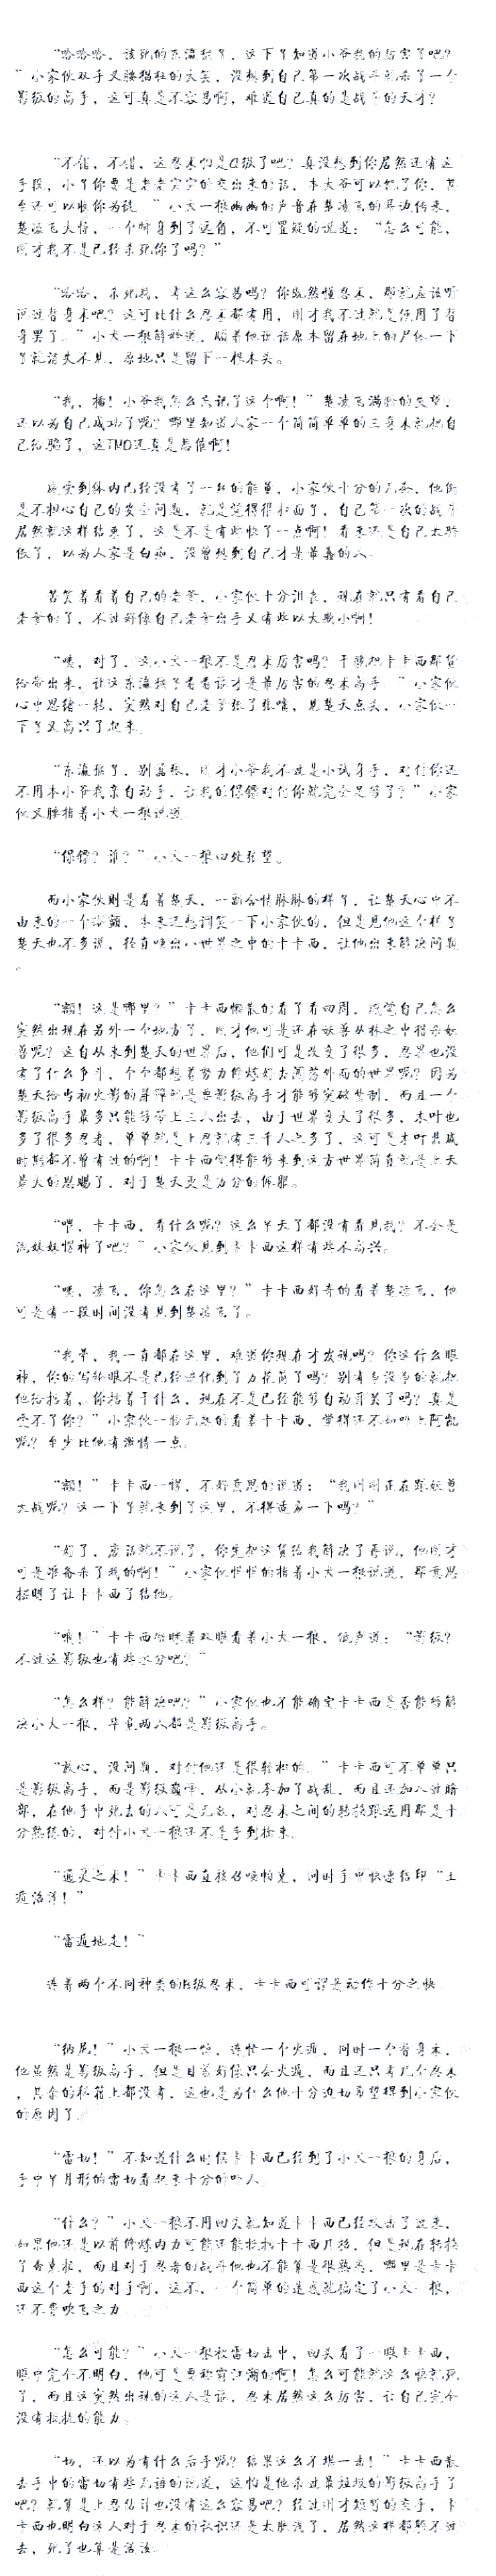 “哈哈哈，该死的东瀛猴子，这下子知道小爷我的厉害了吧？
”小家伙双手叉腰猖狂的大笑，没想到自己第一次战斗就杀了一个
影级的高手，这可真是不容易啊，难道自己真的是战斗的天才？
“不错，不错，这忍术怕是A级了吧？真没想到你居然还有这
手段，小子你要是老老实实的交出来的话，本大爷可以饶了你，甚
至还可以收你为徒。”小犬一根幽幽的声音在楚凌飞的耳边传来，
楚凌飞大惊，一个瞬身到了远角，不可置疑的说道：“怎么可能，
刚才我不是已经杀死你了吗？”
“哈哈，杀死我，有这么容易吗？你既然懂忍术，那就应该听
说过替身术吧？这可比什么忍术都有用，刚才我不过就是使用了替
身罢了。”小犬一根解释道，顺着他说话原本留在地上的尸体一下
子就消失不见，原地只是留下一根木头。
“我，擦！小爷我怎么忘记了这个啊！”楚凌飞满脸的失望，
还以为自己成功了呢？哪里知道人家一个简简单单的三身术就把自
己给骗了，这TMD还真是悲催啊！
感受到体内已经没有了一丝的能量，小家伙十分的无奈，他倒
是不担心自己的安全问题，就是觉得很扫面子，自己第一次的战斗
居然就这样结束了，这是不是有些快了一点啊！看来还是自己太骄
傲了，以为人家是白痴，没曾想到自己才是最蠢的人。
苦笑着看着自己的老爹，小家伙十分沮丧，现在就只有看自己
老爹的了，不过好像自己老爹出手又有些以大欺小啊！
“咦，对了，这小犬一根不是忍术厉害吗？干脆把卡卡西那货
给带出来，让这东瀛猴子看看谁才是最厉害的忍术高手。”小家伙
心中思绪一转，突然对自己老爹张了张嘴，见楚天点头，小家伙一
下子又高兴了起来。
“东瀛猴子，别嚣张，刚才小爷我不过是小试身手，对付你还
不用本小爷我亲自动手，让我的保镖对付你就完全足够了？”小家
伙叉腰指着小犬一根说道。
“保镖？谁？”小犬一根四处张望。
而小家伙则是看着楚天，一副含情脉脉的样子，让楚天心中不
由来的一个寒颤，本来还想调笑一下小家伙的，但是见他这个样子
楚天也不多说，径直唤出小世界之中的卡卡西，让他出来解决问题
。
“额！这是哪里？”卡卡西懒散的看了看四周，感觉自己怎么
突然出现在另外一个地方了，刚才他可是还在妖兽丛林之中指示妖
兽呢？这自从来到楚天的世界后，他们可是改变了很多，忍界也没
有了什么争斗，个个都想着努力修炼好去闯荡外面的世界呢？因为
楚天给当初火影的屏障就是要影级高手才能够突破禁制，而且一个
影级高手最多只能够带上三人出去，由于世界变大了很多，木叶也
多了很多忍者，单单就是上忍就有三千人之多了，这可是木叶鼎盛
时期都不曾有过的啊！卡卡西觉得能够来到这方世界简直就是上天
最大的恩赐了，对于楚天更是万分的佩服。
“喂，卡卡西，看什么呢？这么半天了都没有看见我？不会是
泡妹妹愣神了吧？”小家伙见到卡卡西这样有些不高兴。
“咦，凌飞，你怎么在这里？”卡卡西好奇的看着楚凌飞，他
可是有一段时间没有见到楚凌飞了。
“我晕，我一直都在这里，难道你现在才发现吗？你这什么眼
神，你的写轮眼不是已经进化到了万花筒了吗？别有事没事的就把
他给挡着，你挡着干什么，现在不是已经能够自动开关了吗？真是
受不了你？”小家伙一脸无奈的看着卡卡西，觉得还不如叫上阿凯
呢？至少比他有激情一点。
“额！”卡卡西一愣，不好意思的说道：“我刚刚正在跟妖兽
大战呢？这一下子就来到了这里，不得适应一下吗？”
“好了，废话就不说了，你先把这货给我解决了再说，他刚才
可是准备杀了我的啊！”小家伙恨恨的指着小犬一根说道，那意思
摆明了让卡卡西了结他。
“哦！”卡卡西眯眯着双眼看着小犬一根，低声道：“影级？
不过这影级也有些水分吧？”
“怎么样？能解决吧？”小家伙也不能确定卡卡西是否能够解
决小犬一根，毕竟两人都是影级高手。
“放心，没问题，对付他还是很轻松的。”卡卡西可不单单只
是影级高手，而是影级巅峰，从小就参加了战乱，而且还加入过暗
部，在他手中死去的人可是无数，对忍术之间的转换跟运用那是十
分熟练的，对付小犬一根还不是手到擒来。
“通灵之术！”卡卡西直接召唤帕克，同时手中快速结印“土
遁沼泽！”
“雷遁地走！”
连着两个不同种类的B级忍术，卡卡西可谓是动作十分之快。
“纳尼！”小犬一根一惊，连忙一个火遁，同时一个替身术，
他虽然是影级高手，但是目前好像只会火遁，而且还只有几个忍术
，其余的秘籍上都没有，这也是为什么他十分迫切希望得到小家伙
的原因了。
“雷切！”不知道什么时候卡卡西已经到了小犬一根的身后，
手中半月形的雷切看起来十分的吓人。
“什么？”小犬一根不用回头就知道卡卡西已经攻击了过来，
如果他还是以前修炼内力可能还能抵挡卡卡西几招，但是现在转换
了查克拉，而且对于忍者的战斗他也不能算是很熟悉，哪里是卡卡
西这个老手的对手啊，这不，一个简单的迷惑就搞定了小犬一根，
还不费吹飞之力。
“怎么可能？”小犬一根被雷切击中，回头看了一眼卡卡西，
眼中完全不明白，他可是要称霸江湖的啊！怎么可能就这么快就死
了，而且这突然出现的这人是谁，忍术居然这么厉害，让自己完全
没有抵抗的能力。
“切，还以为有什么后手呢？结果这么不堪一击！”卡卡西散
去手中的雷切有些无语的说道，这怕是他杀过最垃圾的影级高手了
吧？就算是上忍估计也没有这么容易吧？经过刚才短暂的交手，卡
卡西也明白这人对于忍术的认识还是太肤浅了，居然这样都躲不过
去，死了也算是活该。